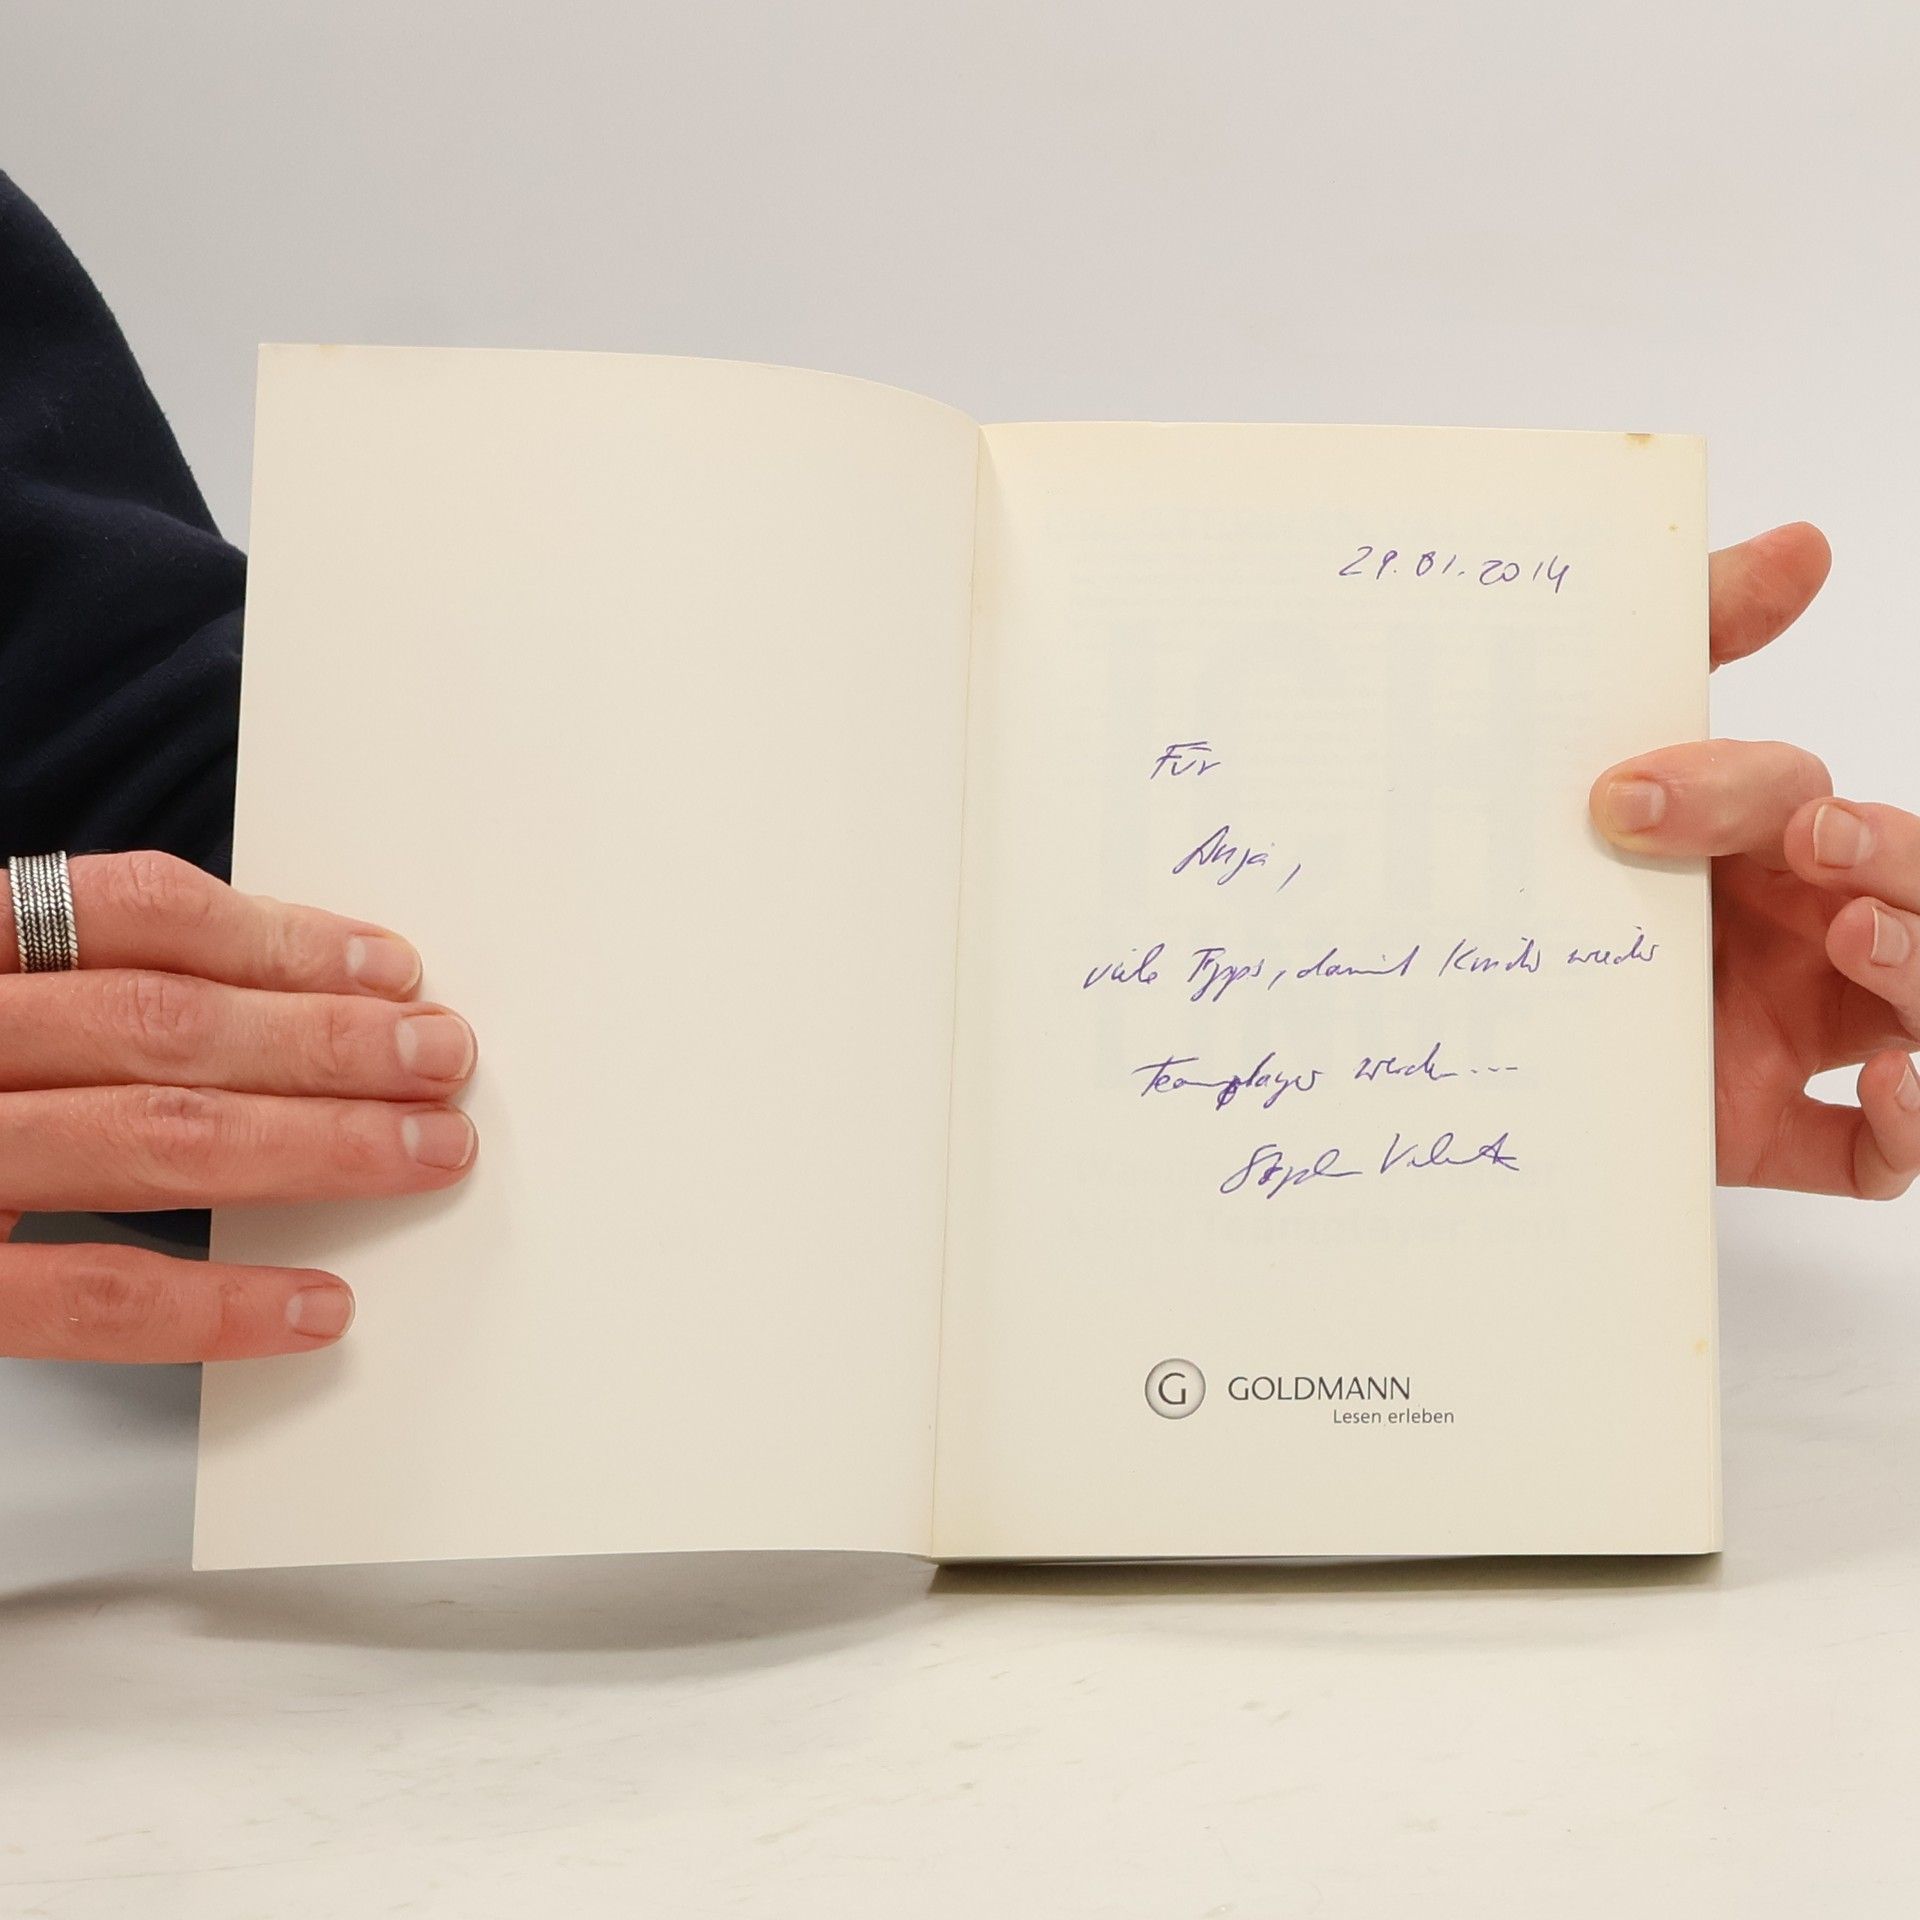 29.01.2014
Für
Anja,
viele Tipps, damit Kinder wieder
Teamplayer werden...
Stephan Valentin
G GOLDMANN
Lesen erleben